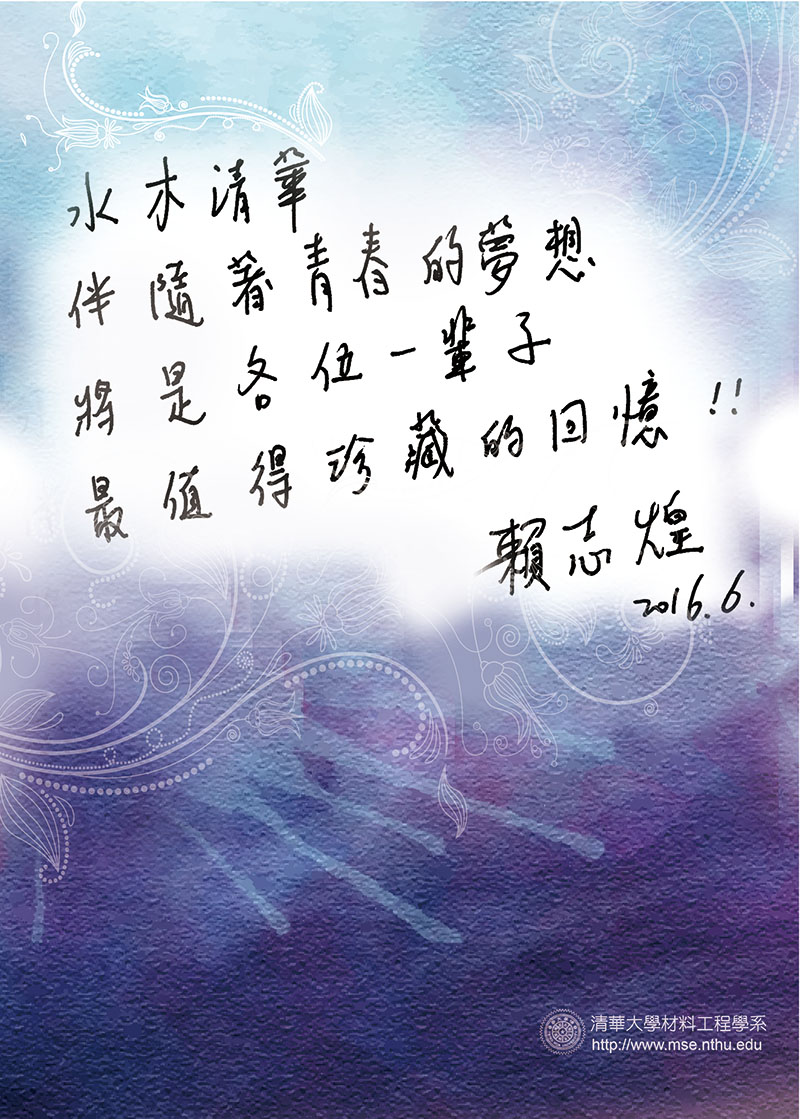 水木清華
伴隨著青春的夢想
將是各位一輩子
最值得珍藏的回憶!!
賴志煌
2016.6.
清華大學材料工程學系
http://www.mse.nthu.edu